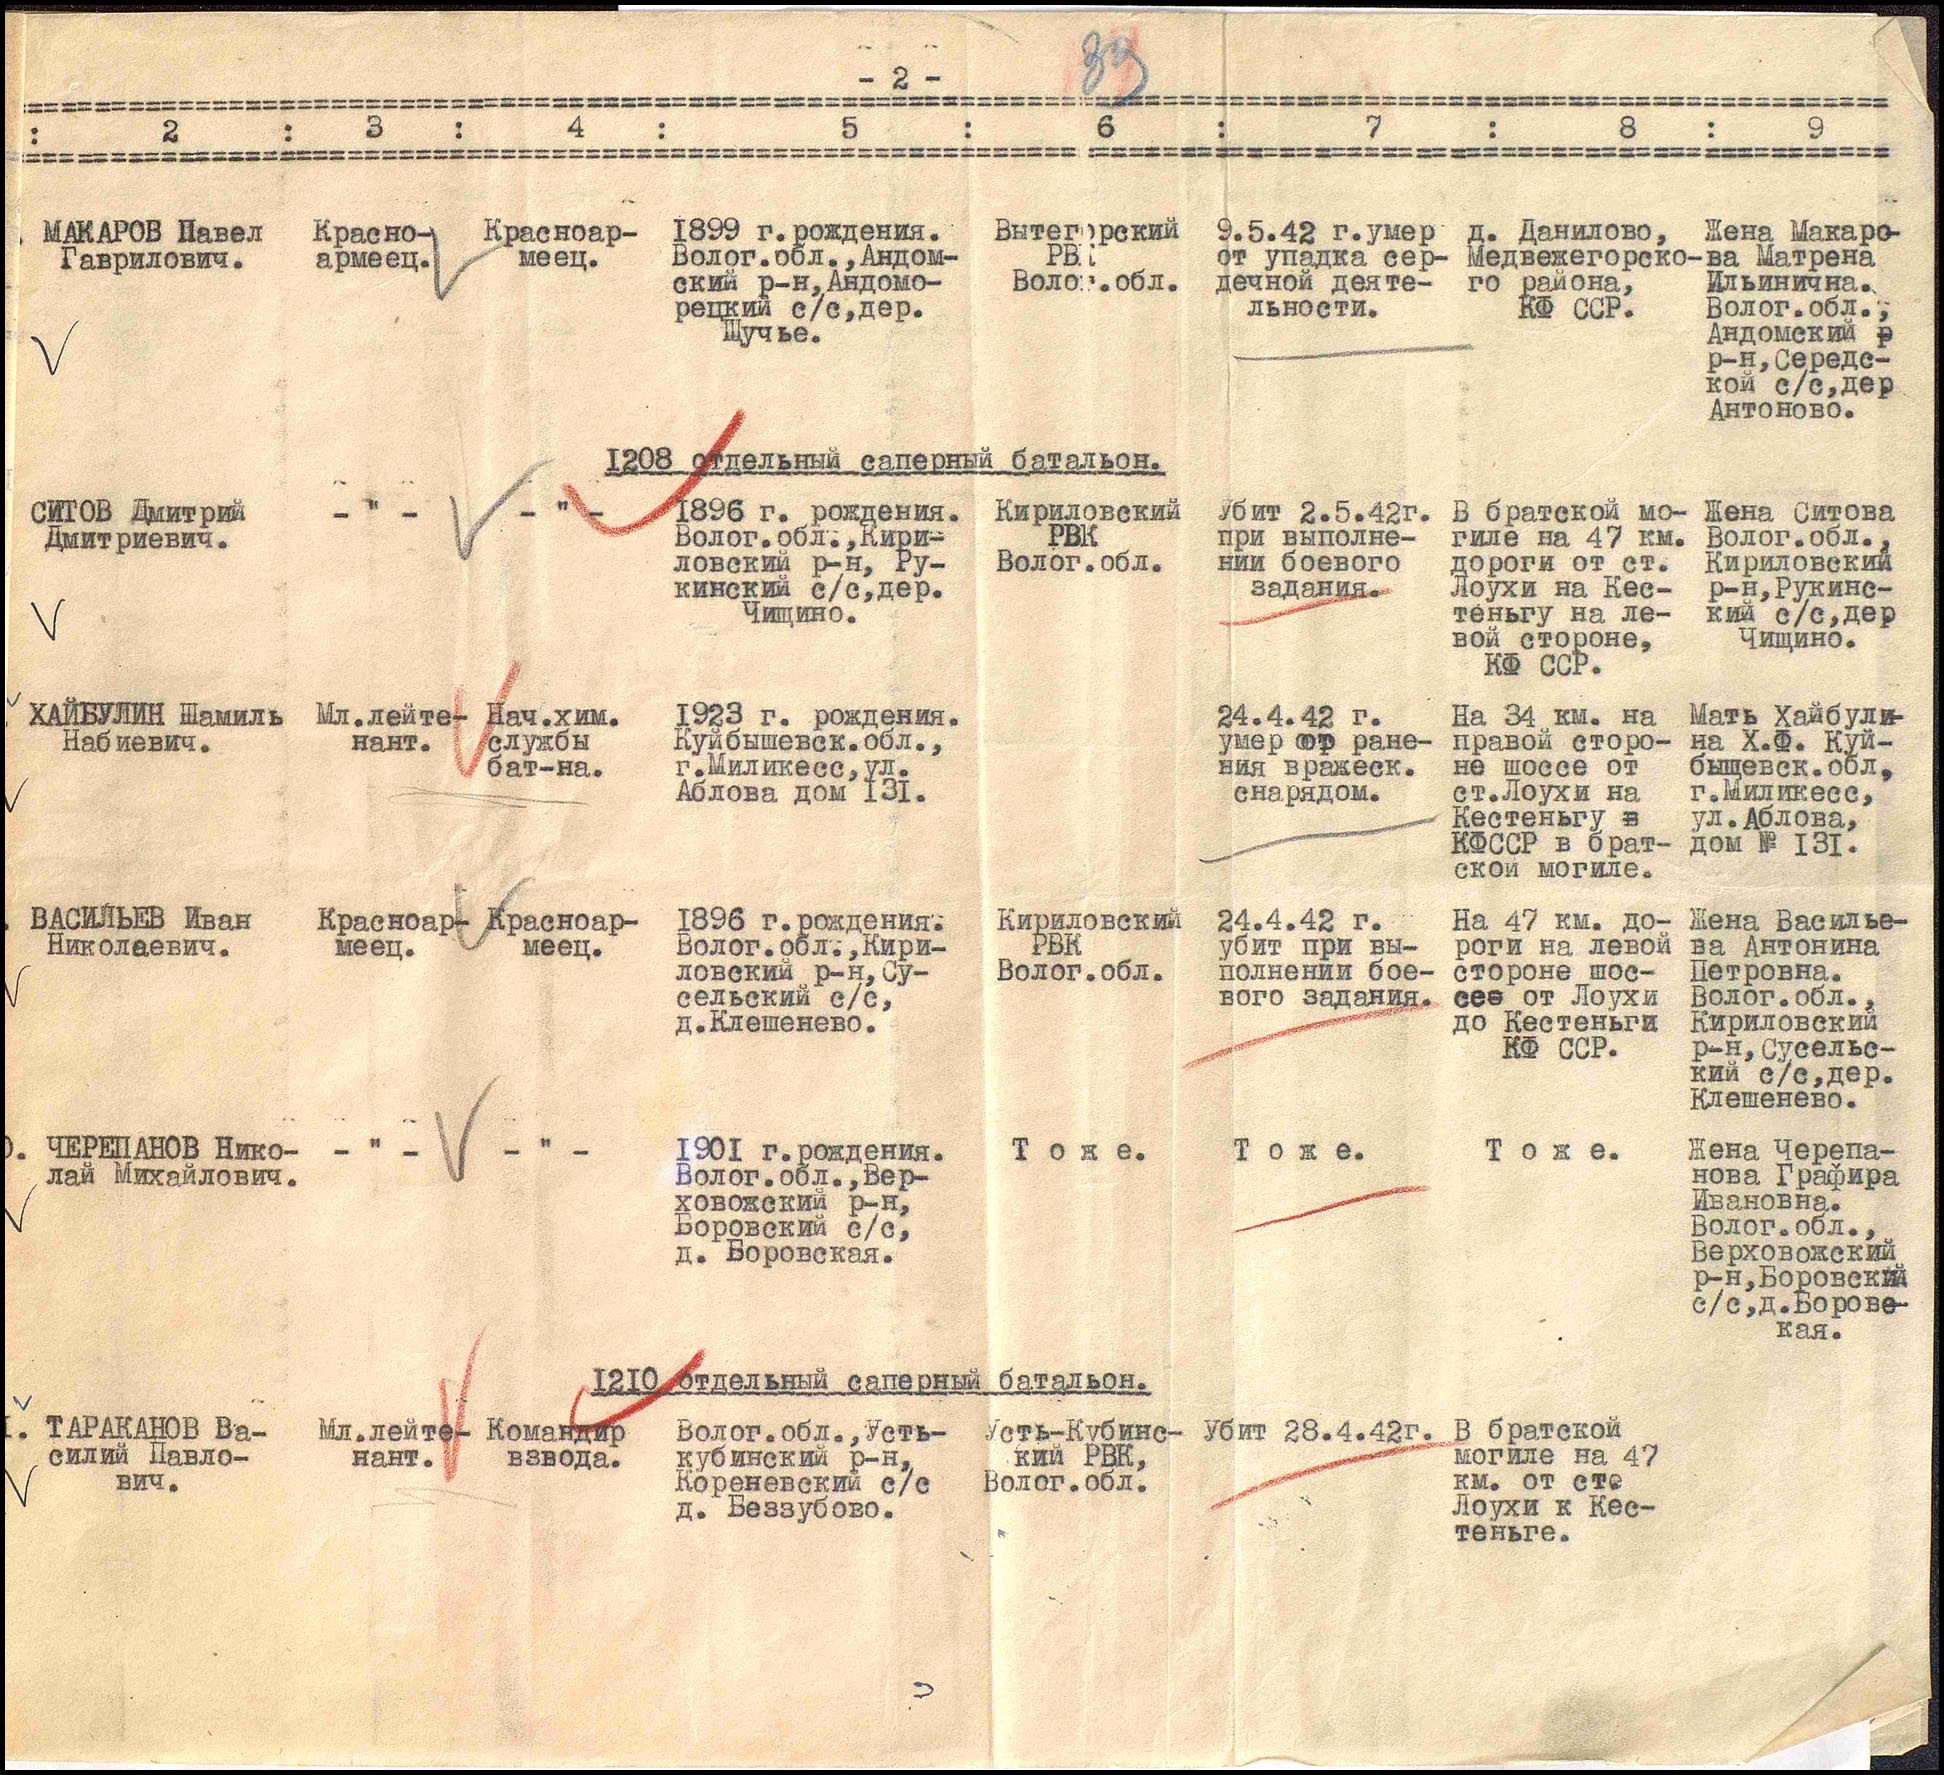 - 2 -
39
: 2 : 3 : 4 : 5 : 6 : 7 : 8 : 9
. МАКАРОВ Павел
Гаврилович.
Красно-
армеец.
Красноар-
меец.
1899 г.рождения.
Волог.обл.,Андом-
ский р-н,Андомо-
рецкий с/с,дер.
Щучье.
Вытегорский
РВ
Волог.обл.
9.5.42 г.умер
от упадка сер-
дечной деяте-
льности.
д. Данилово,
Медвежегорско-
го района,
КФ ССР.
Жена Макаро-
ва Матрена
Ильинична.
Волог.обл.,
Андомский р
р-н,Середс-
кой с/с,дер
Антоново.
1208 отдельный саперный батальон.
СИТОВ Дмитрий
Дмитриевич.
- " -
- " -
1896 г. рождения.
Волог.обл.,Кири-
ловский р-н, Ру-
кинский с/с,дер.
Чищино.
Кириловский
РВК
Волог.обл.
Убит 2.5.42г.
при выполне-
нии боевого
задания.
В братской мо-
гиле на 47 км.
дороги от ст.
Лоухи на Кес-
теньгу на ле-
вой стороне,
КФ ССР.
Жена Ситова
Волог.обл.,
Кириловский
р-н,Рукинс-
кий с/с,дер
Чищино.
ХАЙБУЛИН Шамиль
Набиевич.
Мл.лейте-
нант.
Нач.хим.
службы
бат-на.
1923 г. рождения.
Куйбышевск.обл.,
г.Миликесс,ул.
Аблова дом 131.
24.4.42 г.
умер от ране-
ния вражеск.
снарядом.
На 34 км. на
правой сторо-
не шоссе от
ст.Лоухи на
Кестеньгу в
КФССР в брат-
ской могиле.
Мать Хайбули-
на Х.Ф. Куй-
бышевск.обл,
г.Миликесс,
ул.Аблова,
дом № 131.
. ВАСИЛЬЕВ Иван
Николаевич.
Красноар-
меец.
Красноар-
меец.
1896 г.рождения.
Волог.обл.,Кири-
ловский р-н,Су-
сельский с/с,
д.Клешенево.
Кириловский
РВК
Волог.обл.
24.4.42 г.
убит при вы-
полнении бое-
вого задания.
На 47 км. до-
роги на левой
стороне шос-
сее от Лоухи
до Кестеньги
КФ ССР.
Жена Василье-
ва Антонина
Петровна.
Волог.обл.,
Кириловский
р-н,Сусельс-
кий с/с,дер.
Клешенево.
. ЧЕРЕПАНОВ Нико-
лай Михайлович.
- " -
- " -
1901 г.рождения.
Волог.обл.,Вер-
ховожский р-н,
Боровский с/с,
д. Боровская.
Т о ж е.
Т о ж е.
Т о ж е.
Жена Черепа-
нова Графира
Ивановна.
Волог.обл.,
Верховожский
р-н,Боровский
с/с,д.Боровс-
кая.
1210 отдельный саперный батальон.
. ТАРАКАНОВ Ва-
силий Павло-
вич.
Мл.лейте-
нант.
Командир
взвода.
Волог.обл.,Усть-
кубинский р-н,
Кореневский с/с
д. Беззубово.
Усть-Кубинс-
кий РВК,
Волог.обл.
Убит 28.4.42г.
В братской
могиле на 47
км. от ст.
Лоухи к Кес-
теньге.